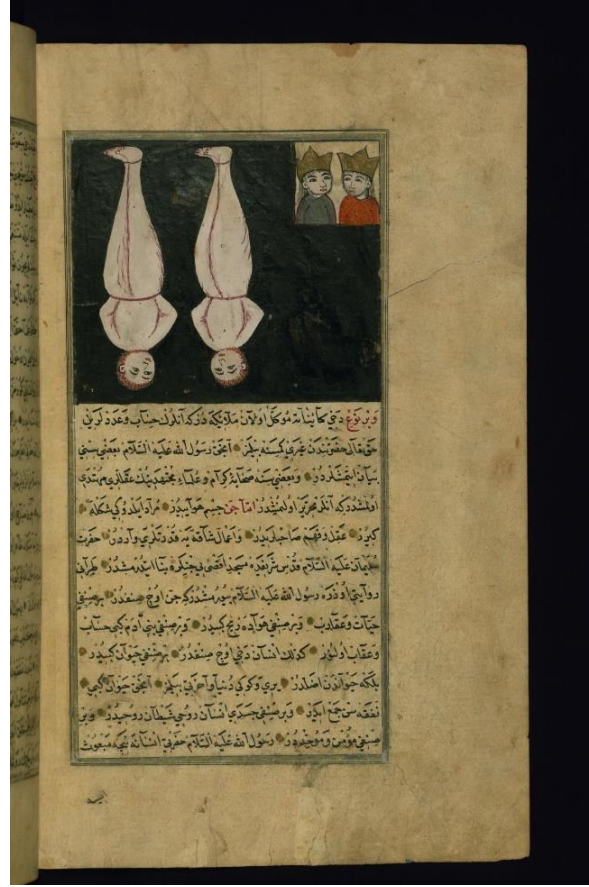 وبر نوع دخی کایناته موکل اولان ملائکه در که آنلرك حساب و عددلرینی
حق تعالی حضرتندن غیری کمسنه بیلمز آنجق رسول الله علیه السلام بعضی سنی
بیان ایتمشلردر وبعضی سنه صحابهٔ کرام وعلماء مجتهدینك عقللری مهتدی
اولمشدر که آنلر تحریر اولنمشدر اما جن جسم هواییدر مراد ایلدوکی شکله
کیرر عقل وفهم صاحبلریدر واعمال شاقه یه قدرتلری واردر حضرت
سلیمان علیه السلام قدس شریفده مسجد اقصی یی جنلره بنا ایتدرمشدر طبرانی
روایتی اوزره رسول الله علیه السلام بیورمشدر که جن اوچ صنفدر بر صنفی
حیات وعقاربدر وبر صنفی هواده ریح کبیدر وبر صنفی بنی آدم کبی حساب
وعقاب اولنور کذلك انسان دخی اوچ صنفدر بر صنفی حیوان کبیدر
بلکه حیواندن اضلدر دنیا و آخرتی بیلمز آنجق حیوان کبی
نفقه سن جمع ایدر وبر صنفی جسدی انسان روحی شیطان روحیدر وبر
صنفی مؤمن وموحددر رسول الله علیه السلام حضرتی انسانه نیجه مبعوث